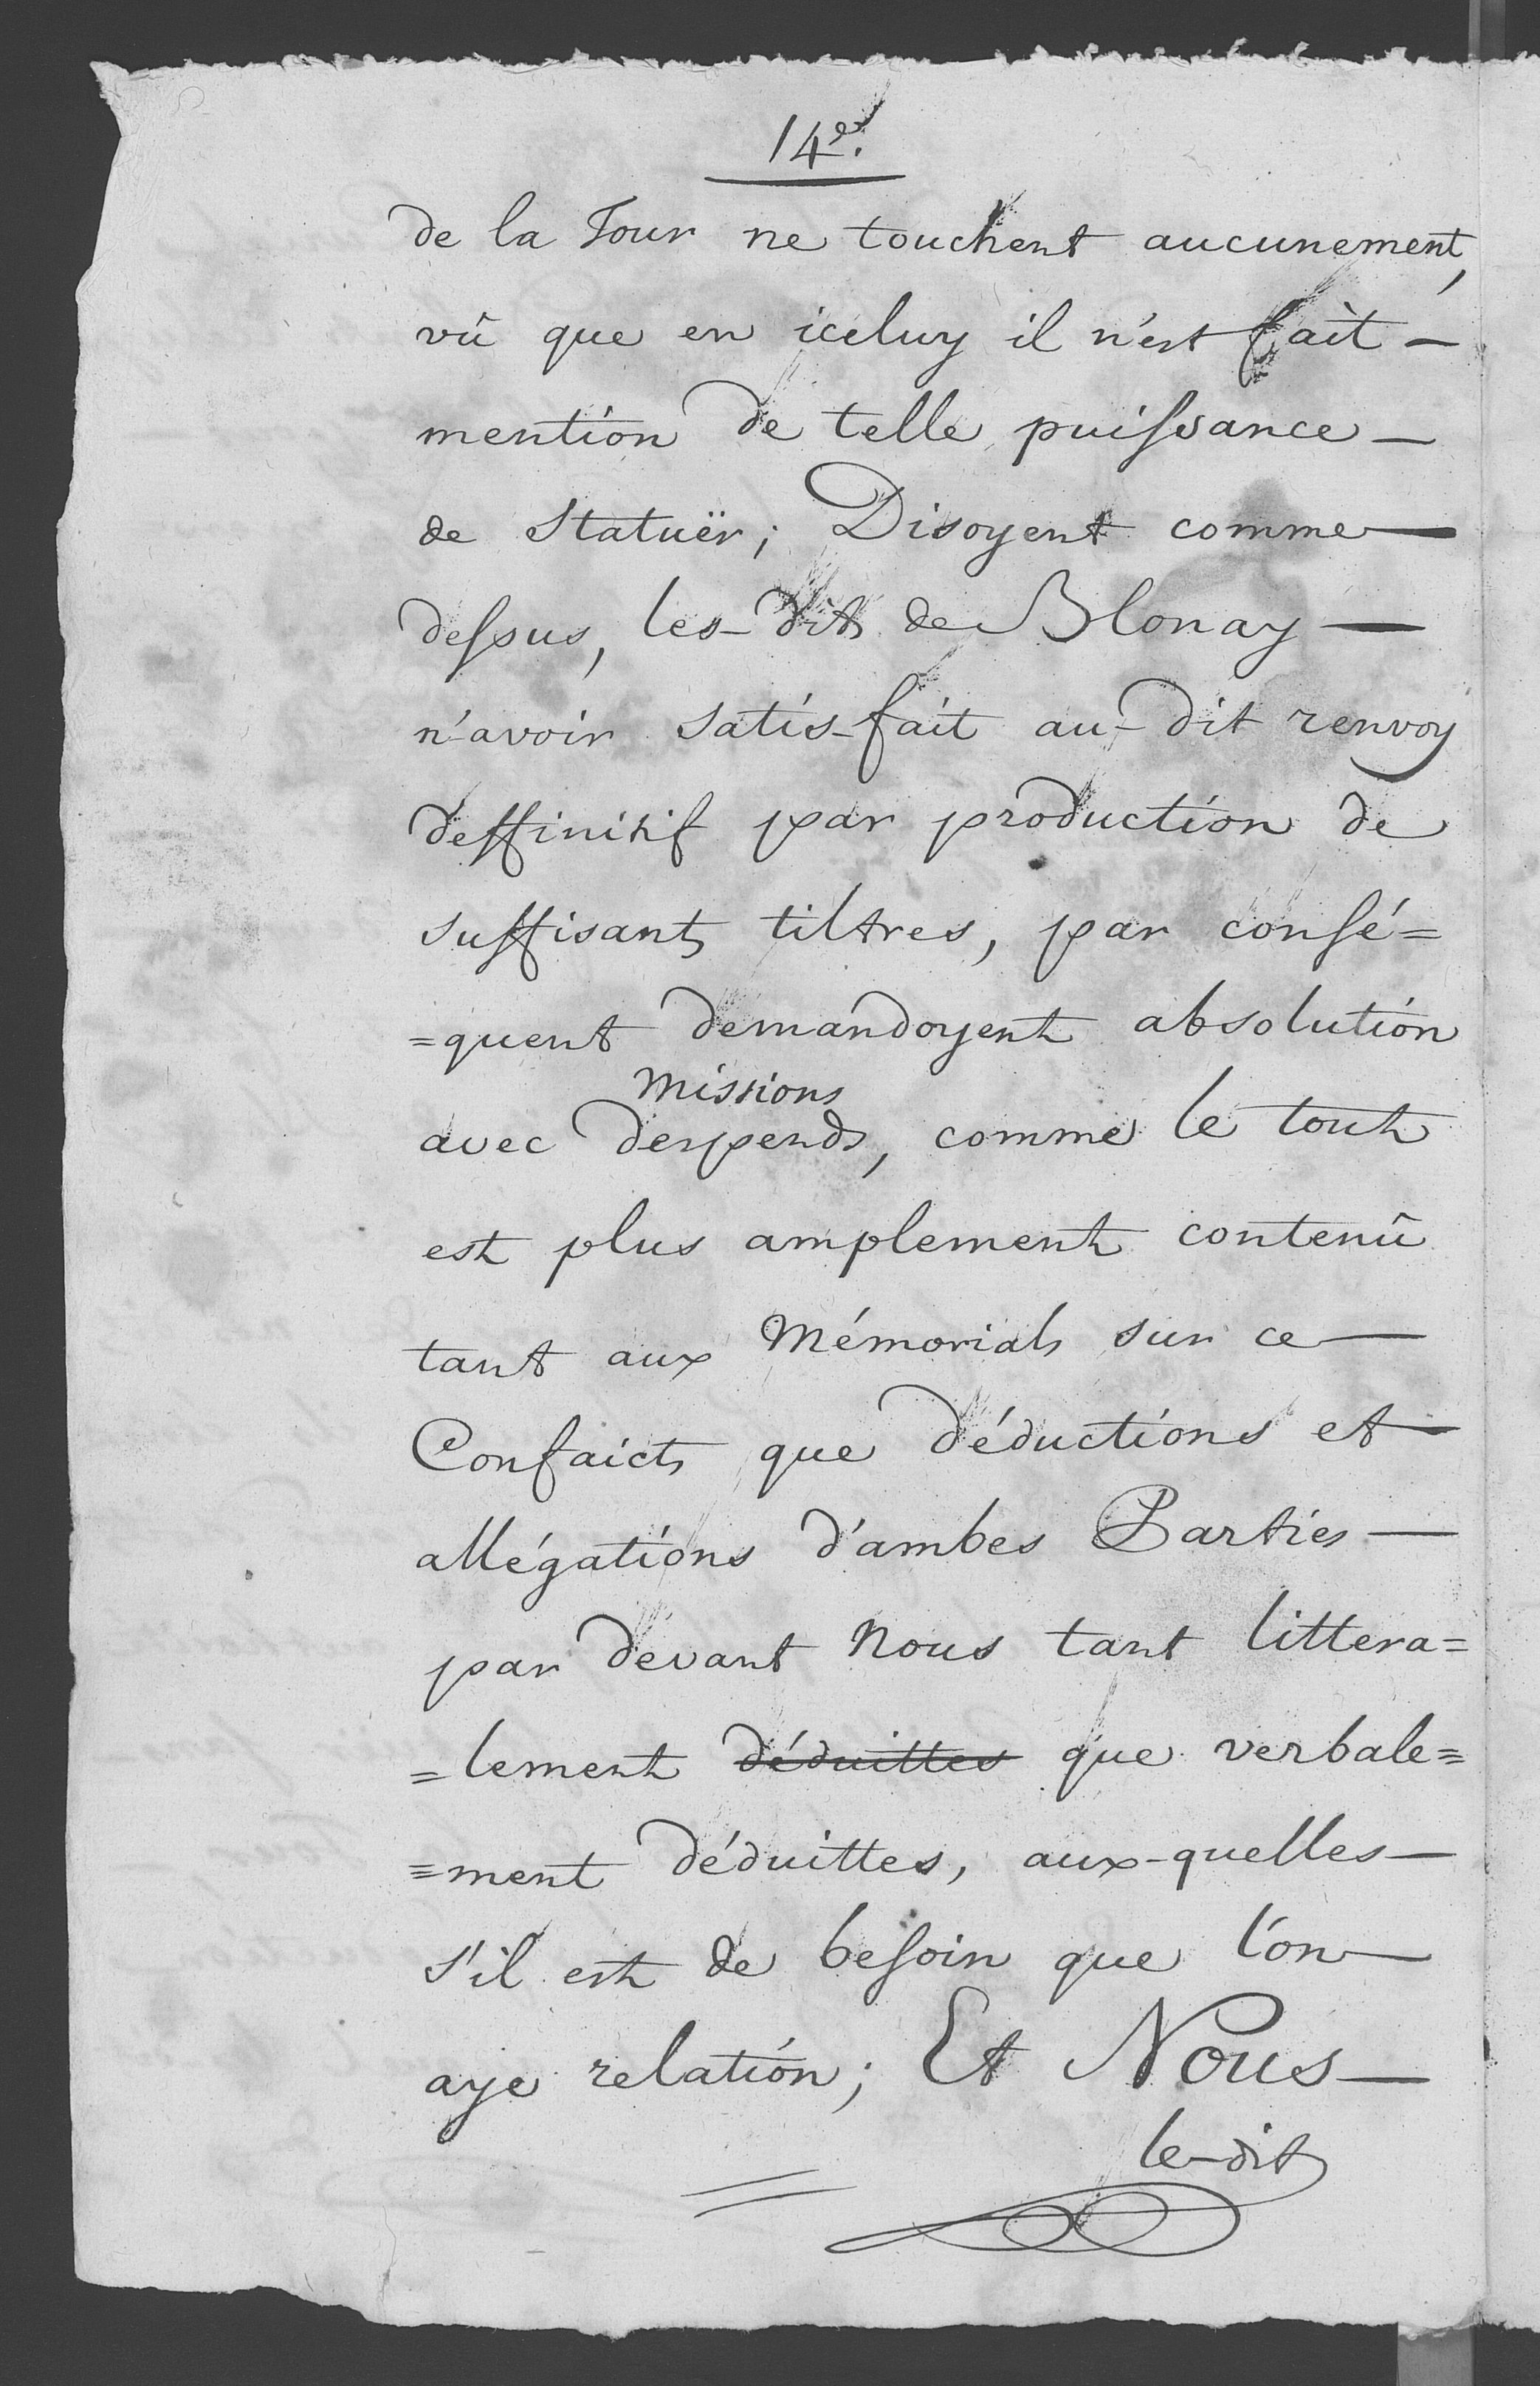 14e.
de la Tour ne touchent aucunement,
vû que en iceluy il n'est fait —
mention de telle puissance —
de Statuër; Disoyent comme —
dessus, les-dits de Blonay —
n'avoir satis-fait au-dit renvoy
deffinitif par production de
suffisants tiltres, par consé=
=quent demandoyent absolution
missions
avec despends, comme le tout
est plus amplement contenû
tant aux Mémorials sur ce —
Confaicts que déductions et —
allégations d'ambes Parties —
par devant Nous tant littera=
=lement déduittes que verbale=
=ment déduittes, aux-quelles —
s'il est de besoin que l'on —
aye relation; Et Nous —
le-dit